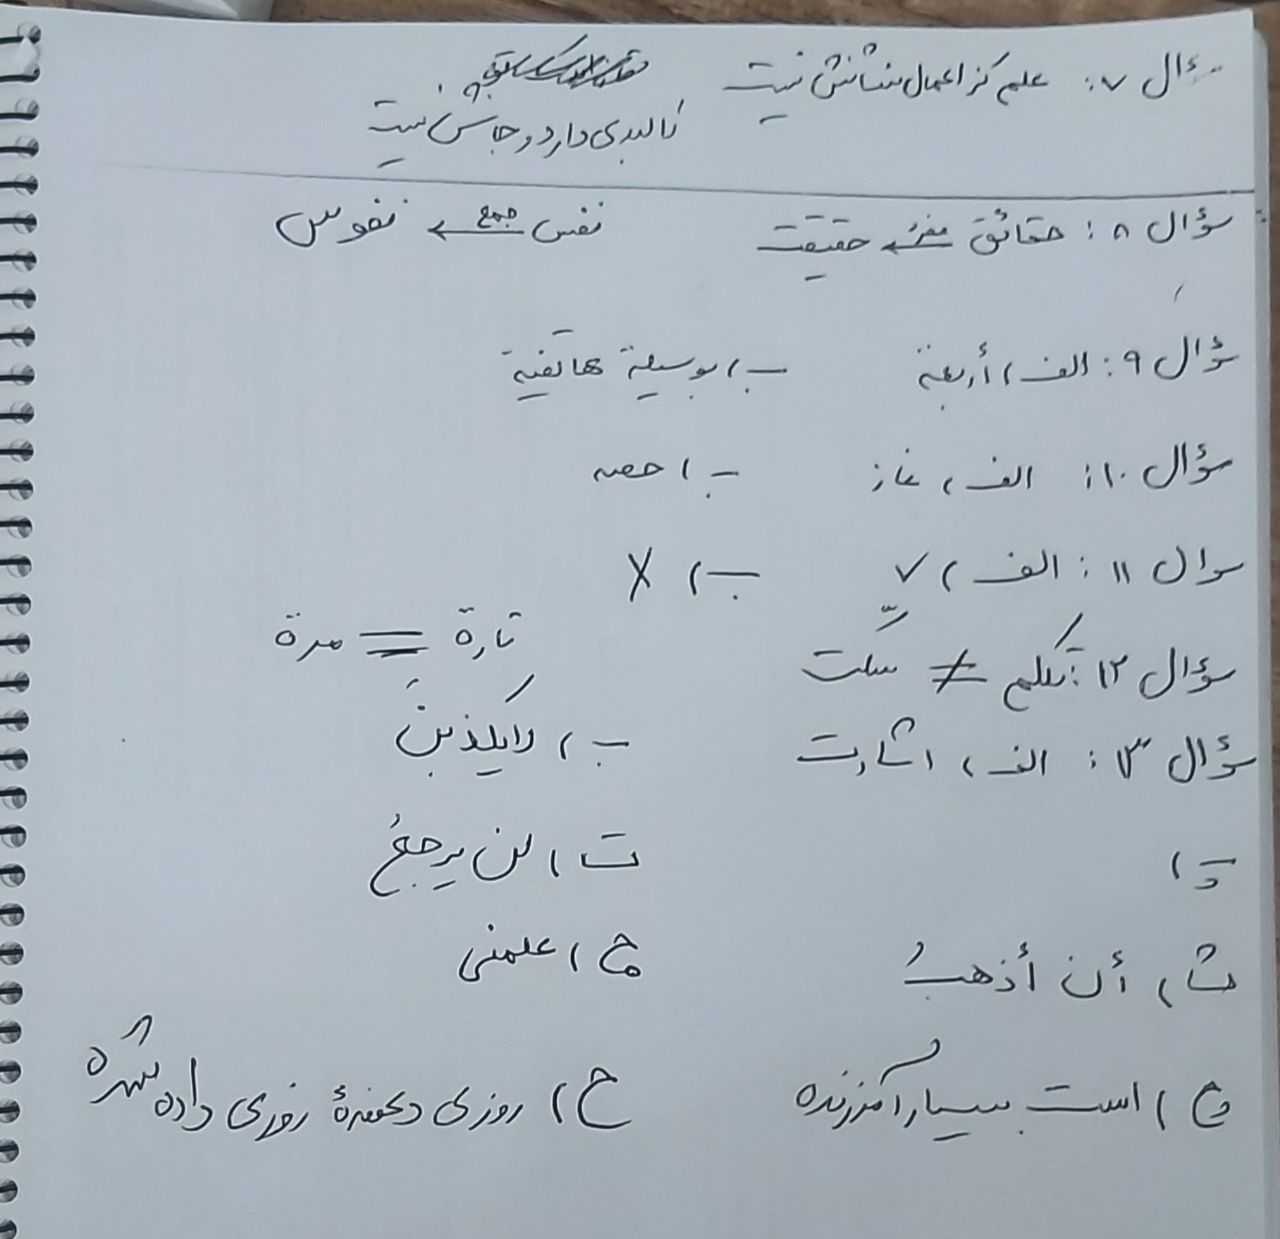 سؤال ۷: علم کز اعمال نشانش نیست
کالبدی دارد و جانش نیست
سؤال ۸: حقائق مفرد← حقیقت نفس جمع← نفوس
سؤال ۹: الف) أربعة ب) بوسیلة هاتفیة
سؤال ۱۰: الف) غاز ب) حصه
سوال ۱۱: الف) ✓ ب) X
سؤال ۱۲: تکلم ≠ سکت تارة = مرة
سؤال ۱۳: الف) اشارت ب) لایکذبن
پ) ت) لن یرجع
ث) أن أذهب ج) علمنی
چ) است بسیار آمرزنده ح) روزی دهندهٔ روزی داده شده